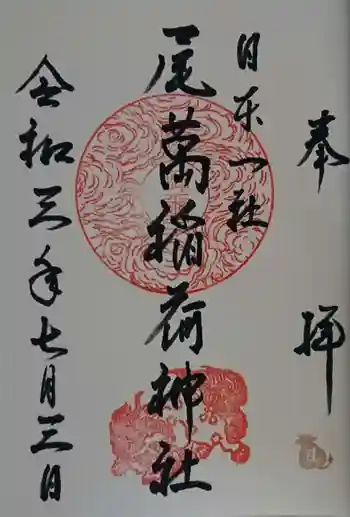 奉拝
日本一社
尾萬稲荷神社
令和三年七月三日